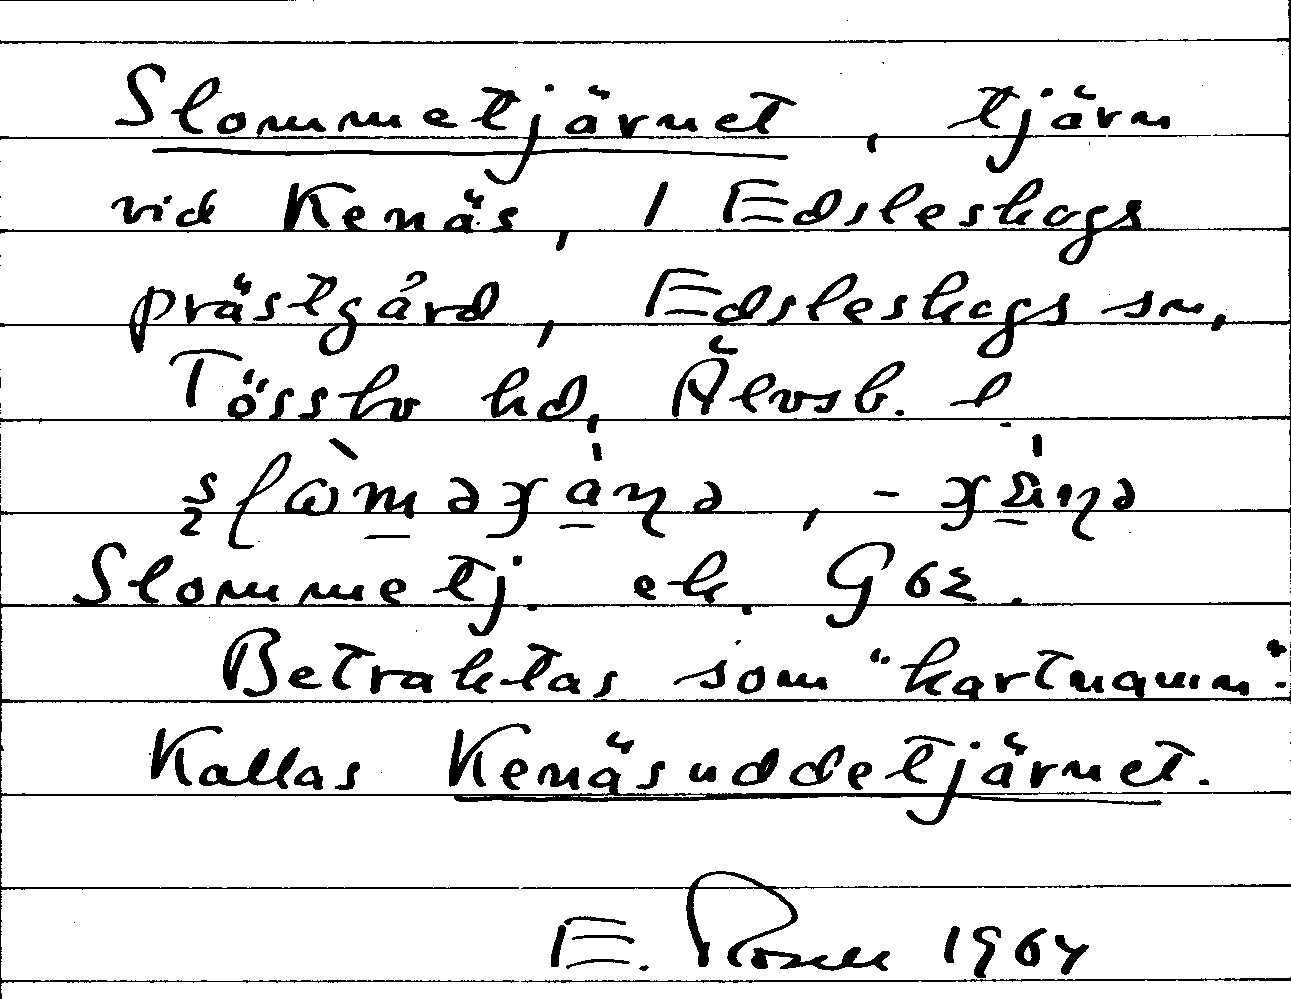 Slommetjärnet, tjärn
vid Kenäs, 1 Edsleskogs
prästgård, Edsleskogs sn,
Tössbo hd, Älvsb. l
Slommetj. ek. G 62.
Betraktas som "kartnamn".
Kallas Kenäsuddetjärnet.
E. Rosell 1964